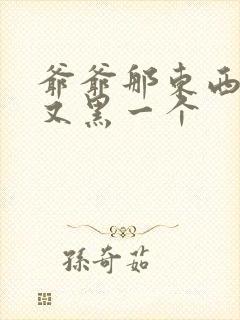 爷爷那东西
又黑一个
孫奇茹